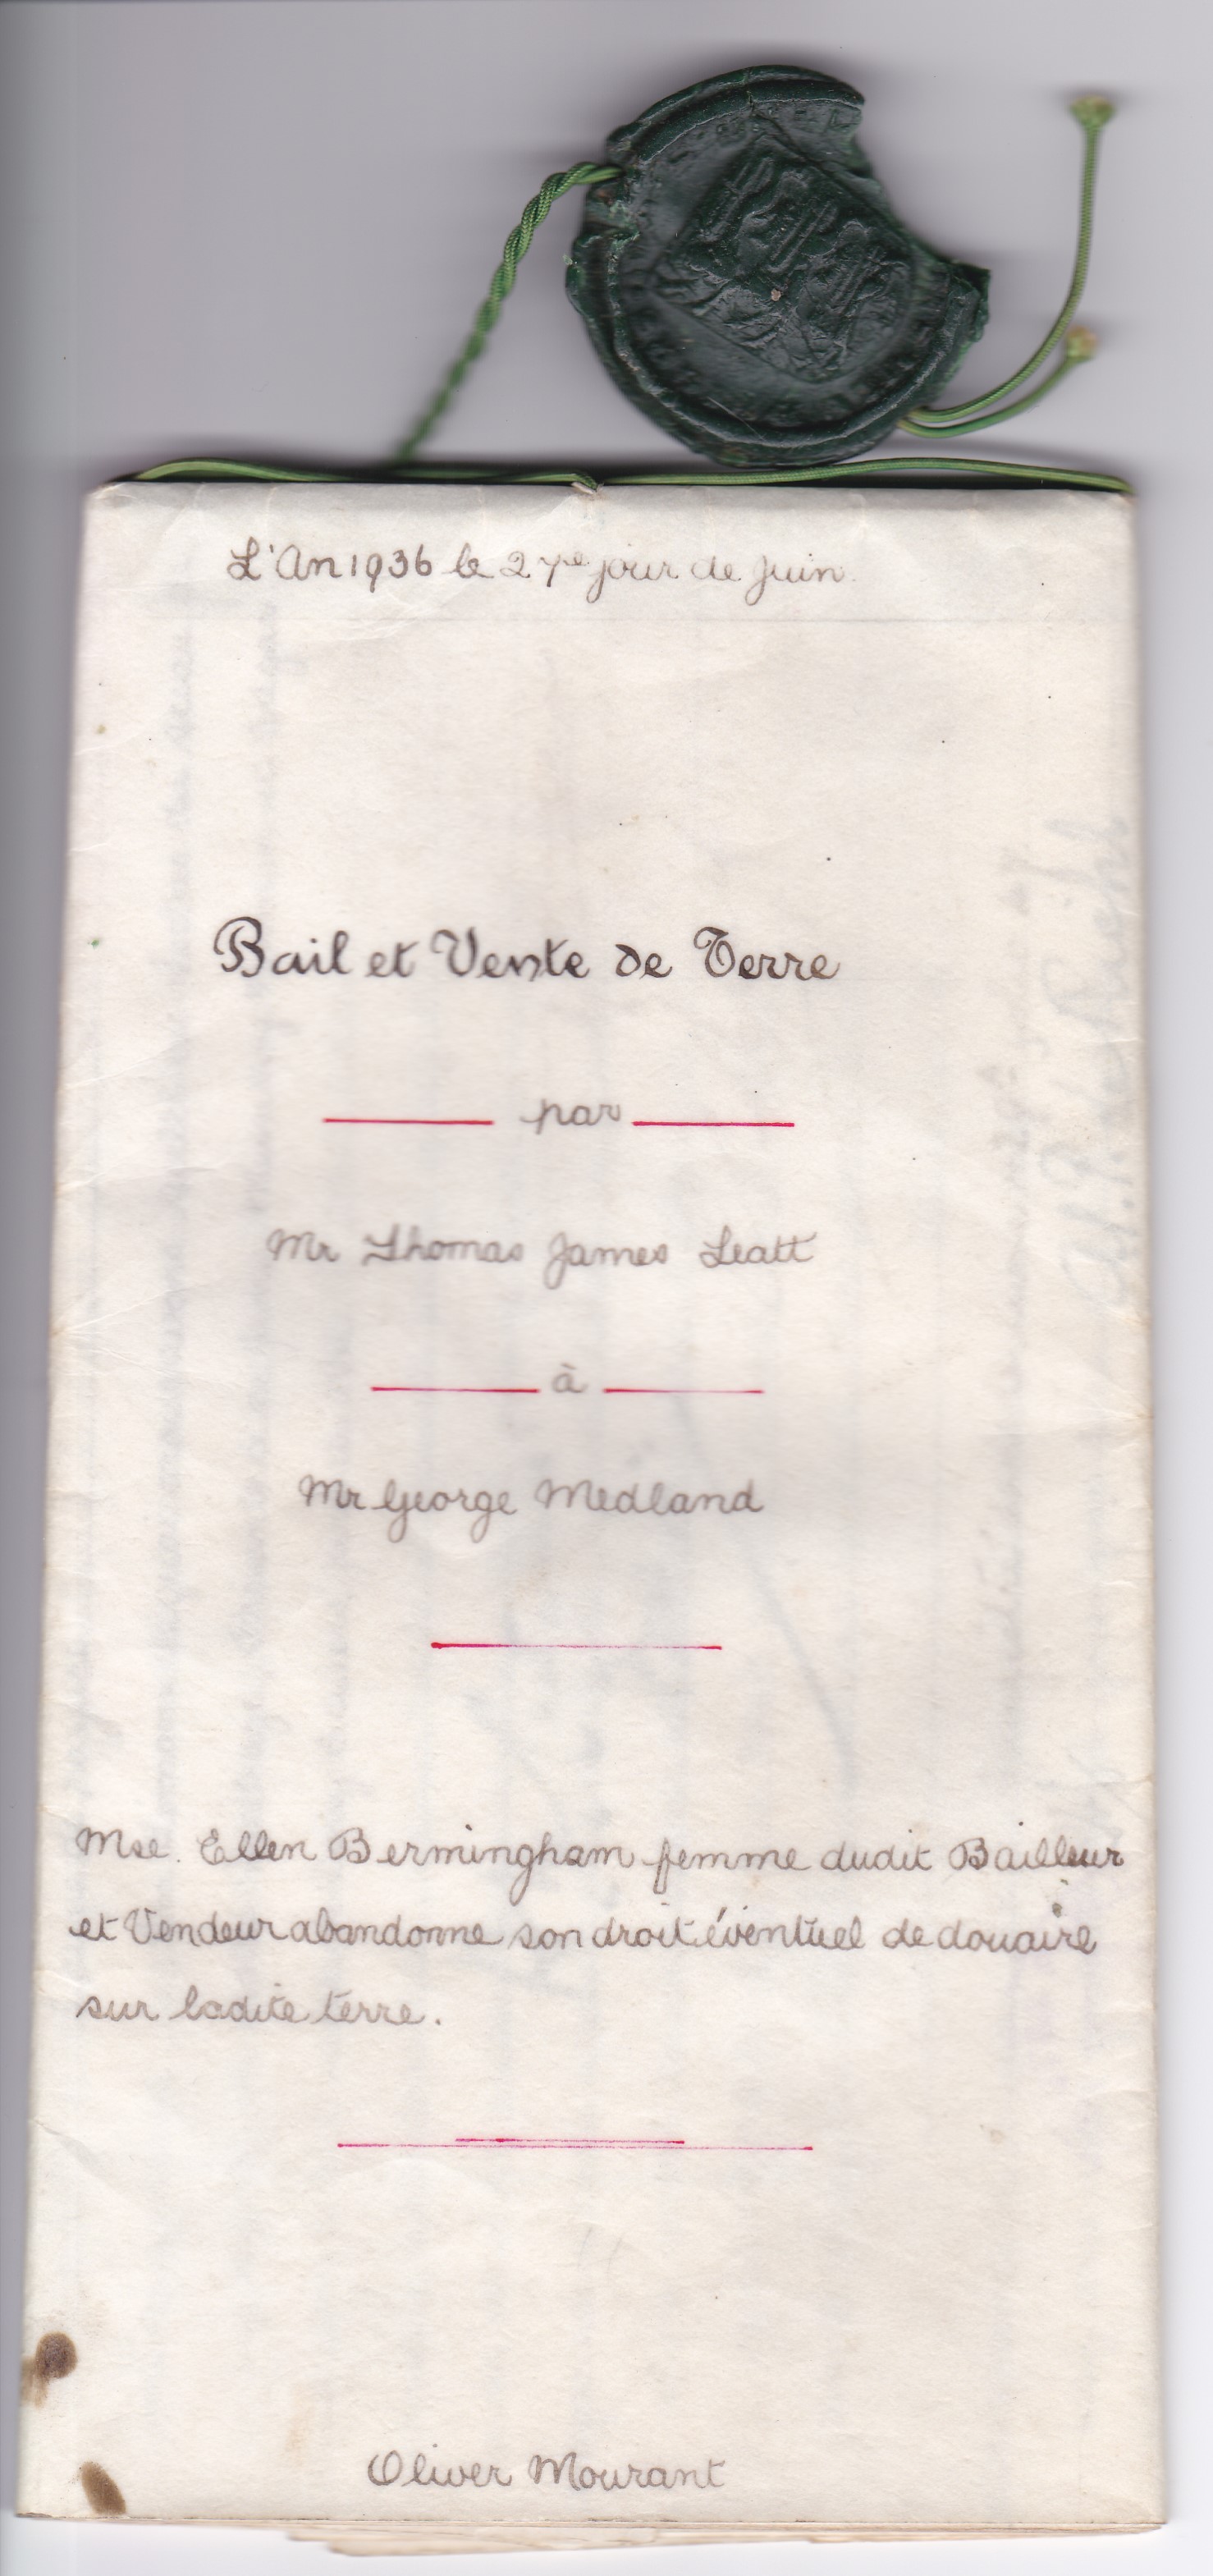 L'An 1936 le 27e jour de Juin.
Bail et Vente de Terre
par
Mr Thomas James Leatt
à
Mr George Medland
Mse. Ellen Bermingham femme dudit Bailleur
et Vendeur abandonne son droit éventuel de douaire
sur ladite terre.
Oliver Mourant